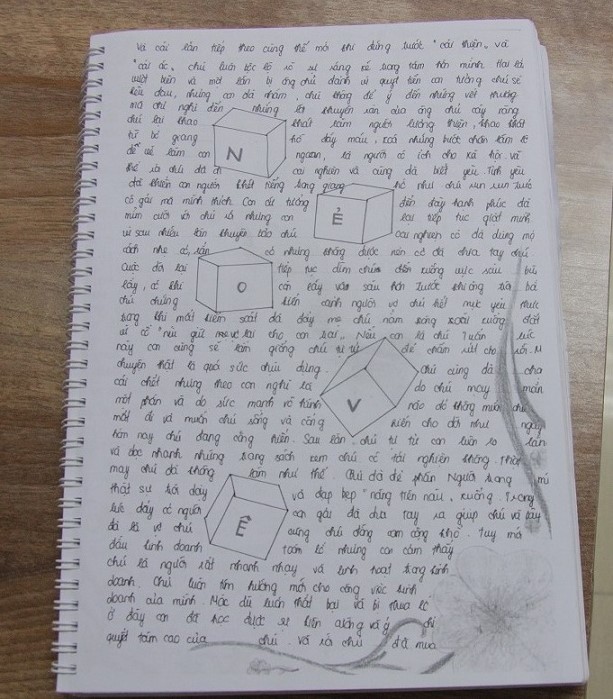 Và cái lần tiếp theo cũng thế mỗi khi đứng trước "cái thiện" và
"cái ác" chú luôn bộc lộ rõ sự sáng
và một lần bị ông chú đánh vì quyết tiến con tưởng chú sẽ
nhưng con đã nhầm, chú không để ý đến những vết thương
mà chỉ nghĩ đến những lời khuyên của ông chú
chú lại khao khát làm người lương thiện, khao khát
N
từ bỏ giang hồ đẫy máu, xoá những bước chân
để về làm con ngoan, là người có ích cho xã hội và
thế là chú đã đi cai nghiện và cũng đã biết yêu. Tình yêu
đã khiến con người khét tiếng trong giang hồ như chú run run trước
cô gái mà mình thích. Con cứ tưởng đến đây hạnh phúc đã
Ẻ
mỉm cười với chú và nhưng con lại tiếp tục
vì sau nhiều lần khuyên bảo chú cai nghiện cô đã dùng mọi
cách có những không được nên cô đã chia tay chú
Cuộc đời lại tiếp tục dìm chú đến xuống vực sâu
O
lấy, có khi còn lấy vào sâu hơn trước khi
chú chứng kiến cảnh người vợ chú hết mực yêu thương
trong khi mất kiểm soát đã đẩy mẹ chú nằm xuống đất
vì cố "níu giữ mẹ vợ lại cho con trai". Nếu con là chú Tuấn lúc
này con cũng sẽ làm giống chú tự tử để chấm dứt cho rồi.
chuyện thật là quá sức chịu đựng. Chú cũng đã
cái chết nhưng theo con nghĩ là do chú may mắn
V
một phần và do sức mạnh vô hình nào đó không muốn chú
mất đi và muốn chú sống và cống hiến cho đời như ngày
hôm nay chú đang cống hiến. Sau lần chú tự tử con liền
và đọc nhanh những trang sách xem chú có tái nghiện không. Thật
may chú đã không làm như thế. Chú đã để phần Người trong mình
thật sự trỗi dậy và đạp bẹp "nàng tiên nâu" xuống. Trong
lúc đấy có người con gái đã đưa tay ra giúp chú và đấy
Ê
đã là vợ chú cùng chú đồng cam cộng khổ. Tuy mới
đầu kinh doanh nhưng con cảm thấy
chú là người rất nhanh nhạy và linh hoạt trong kinh
doanh. Chú luôn tìm hướng mới cho công việc kinh
doanh của mình. Mặc dù luôn thất bại và bị thua lỗ
ở đây con đã học được sự kiên cường và ý chí
quyết tâm cao của chú. Và rồi chú đã mua